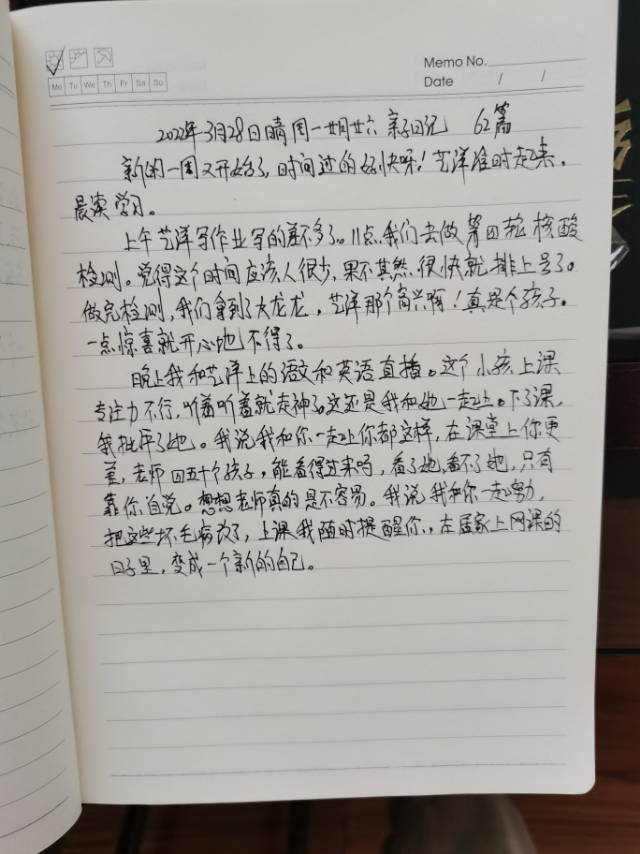 Memo No.
Mo Tu We Th Fr Sa Su
Date / /
2022年3月28日晴 周一廿月廿六 亲子日记 62篇
新的一周又开始了，时间过的好快呀！艺洋准时起来，
晨读学习。
上午艺洋写作业写的差不多了。11点我们去做第四轮核酸
检测。觉得这个时间应该人很少，果不其然，很快就排上号了。
做完检测，我们拿到了大龙龙，艺洋那个高兴啊！真是个孩子。
一点惊喜就开心地不得了。
晚上我和艺洋上的语文和英语直播。这个小孩上课
专注力不行，听着听着就走神了。这还是我和她一起上。下了课，
我批评了她。我说我和你一起上你都这样，在课堂上你更
差，老师四五十个孩子，能看得过来吗，看了她，看不了她，只有
靠你自觉。想想老师真的是不容易。我说我和你一起努力，
把这些坏毛病改了，上课我随时提醒你，在居家上网课的
日子里，变成一个新的自己。